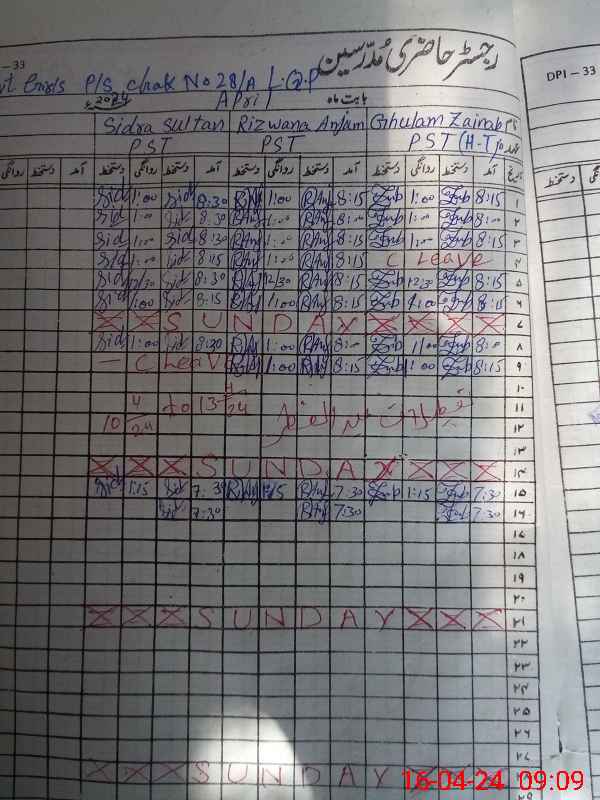 رجسٹر حاضری مُدرّسین
– 33
DPI – 33
P/S chak No 28/A L.Q.P
بابت ماہ April 2024
نام Sidra Sultan Rizwana Anjam Ghulam Zainab
عہدہ PST PST PST (H.T)
تاریخ آمد دستخط روانگی دستخط آمد دستخط روانگی دستخط آمد دستخط روانگی دستخط آمد
Sid 1:00 Sid 8:30 RAnj 1:00 RAnj 8:15 Znb 1:00 Znb 8:15 ۱
Sid 1:00 Sid 8:30 RAnj 1:00 RAnj 8:15 Znb 1:00 Znb 8:00 ۲
Sid 1:00 Sid 8:30 RAnj 1:00 RAnj 8:15 Znb 1:00 Znb 8:15 ۳
Sid 1:00 Sid 8:15 RAnj 1:00 RAnj 8:15 C Leave ۴
Sid 12:30 Sid 8:30 RAnj 12:30 RAnj 8:15 Znb 12:30 Znb 8:15 ۵
Sid 1:00 Sid 8:15 RAnj 1:00 RAnj 8:15 Znb 1:00 Znb 8:15 ۶
X X X S U N D A Y X X X X ۷
Sid 1:00 Sid 8:30 RAnj 1:00 RAnj 8:00 Znb 1:00 Znb 8:00 ۸
— C Leave RAnj 1:00 RAnj 8:15 Znb 1:00 Znb 8:15 ۹
۱۰
10 4/24 to 13 4/24 تعطیلات عید الفطر ۱۱
۱۲
۱۳
X X X S U N D A Y X X X ۱۴
Sid 1:15 Sid 7:30 RAnj 1:15 RAnj 7:30 Znb 1:15 Znb 7:30 ۱۵
Sid 7:30 RAnj 7:30 Znb 7:30 ۱۶
۱۷
۱۸
۱۹
۲۰
X X X S U N D A Y X X X ۲۱
۲۲
۲۳
۲۴
۲۵
۲۶
۲۷
X X X S U N D A Y X
16-04-24 09:09